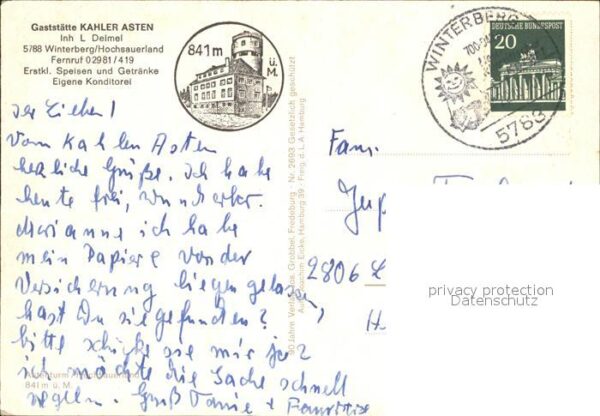 Gaststätte KAHLER ASTEN
Inh L Deimel
5788 Winterberg/Hochsauerland
Fernruf 02981/419
Erstkl. Speisen und Getränke
Eigene Konditorei
841 m
ü. M.
WINTERBERG
5788
DEUTSCHE BUNDESPOST
20
Ihr Lieben!
Vom Kahlen Asten
herzliche Grüße. Ich habe
heute frei, wunderbar.
Marianne ich habe
mein Papiere von der
Versicherung liegen gelassen,
hast Du sie gefunden?
bitte schicke sie mir
ich möchte die Sache schnell
regeln. Gruß Tante +
Fam.
2806 L
H
Astenturm Hochsauerland
841 m ü. M.
30 Jahre Verlag Jos. Grobbel, Fredeburg · Nr. 2693 Gesetzlich geschützt
Aufn. Joachim Eicke, Hamburg 39 · Freig. d. L.A. Hamburg
privacy protection
Datenschutz